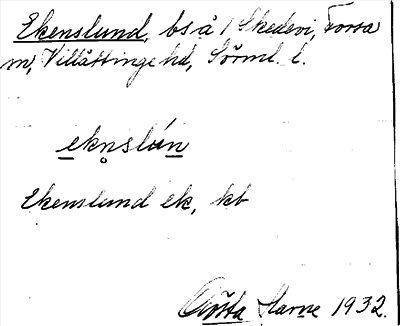 Ekenslund, bs å 1 Skedevi, Forssa
sn, Villåttinge hd, Sörml. l.
eknslún
Ekenslund ek, kb
Gösta 1932.